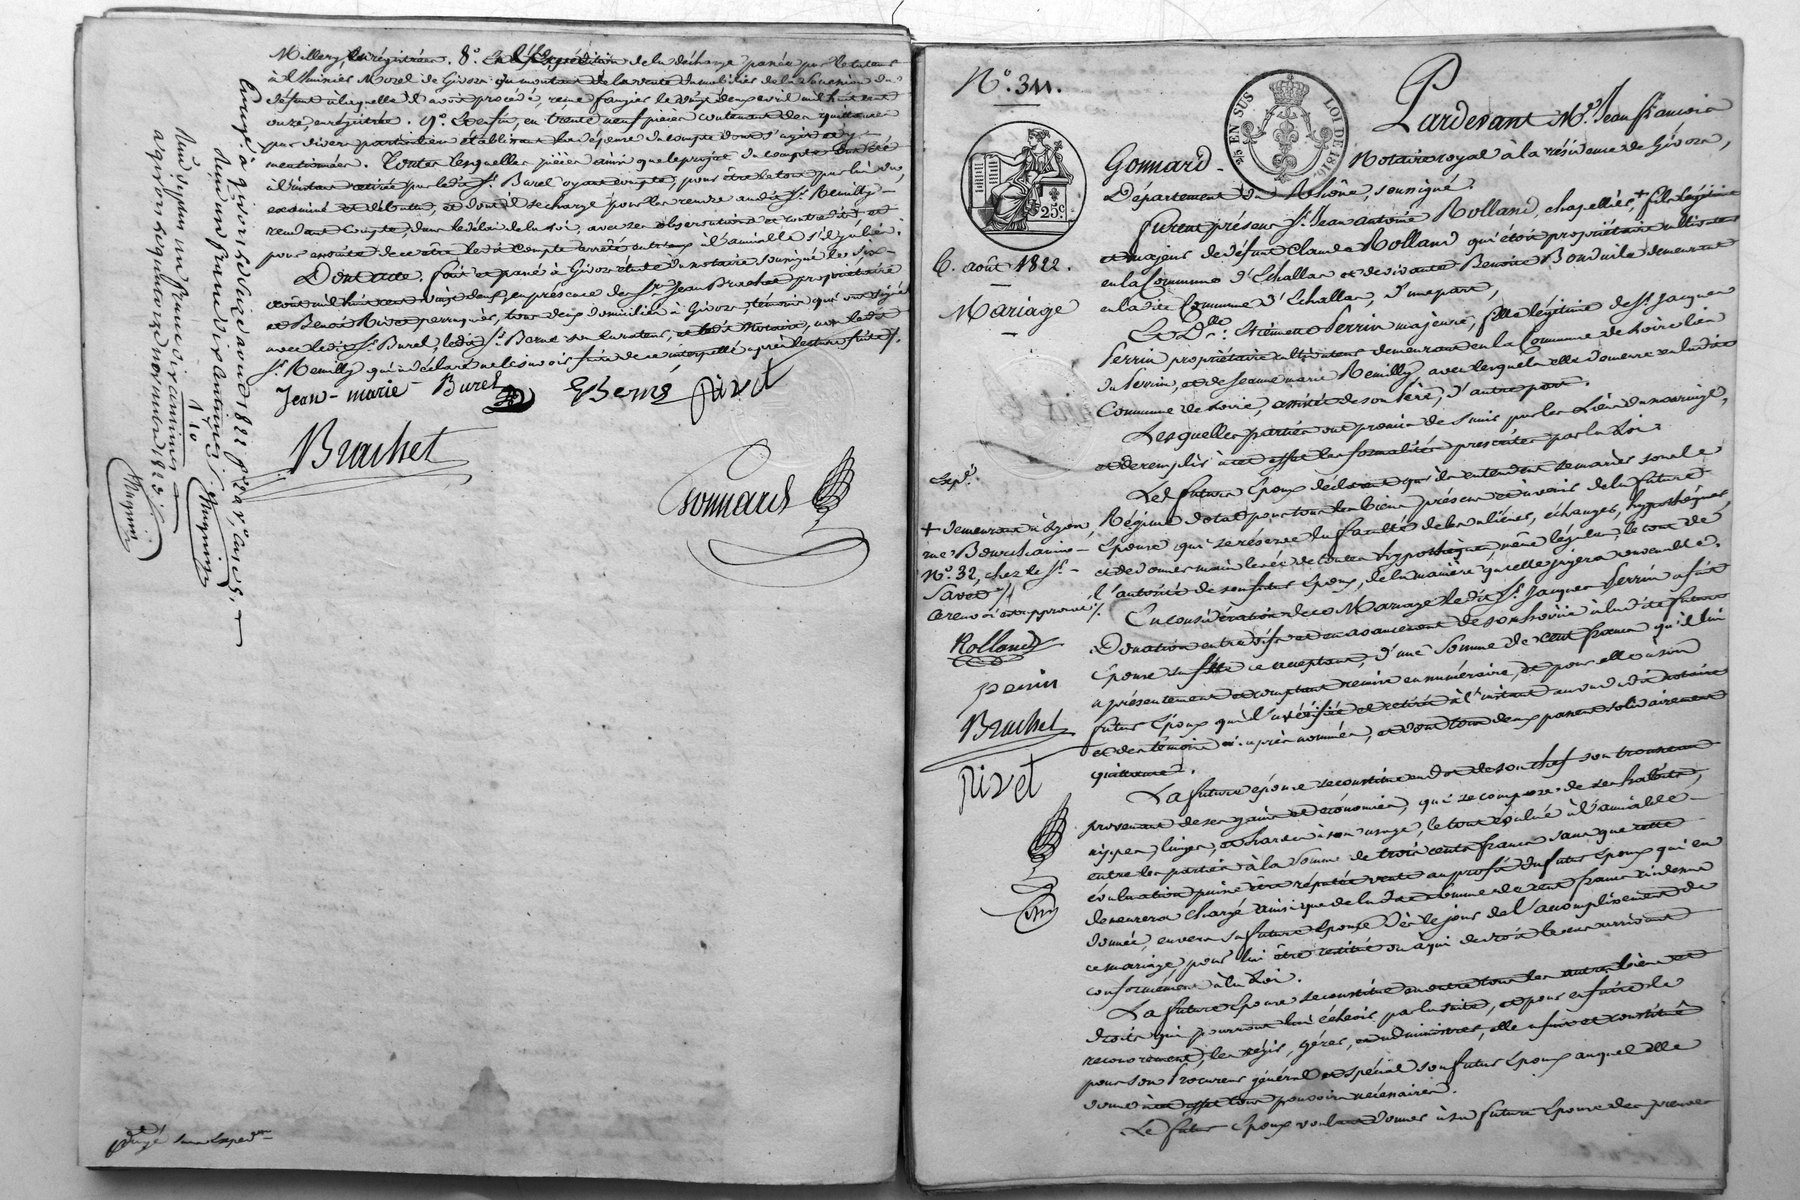 Millery, enrégistrée. 8.° Expédition de la décharge passée par le tuteur
à l'huissier Morel de Givors du montant de la vente du mobilier de la succession du
défunt à laquelle il avoit procédé, reçue le vingt deux avril mil huit cent
onze, enregistrée. 9.° Et enfin, en trente neuf pièces contenant des quittances
par divers particuliers établissant la dépense du compte dont s'agit
mentionnées. Toutes lesquelles pièces ainsi que le projet du compte ont été
à l'instant retirés par ledit S.r Burel oyant compte, pour être le tout par lui vu,
examiné et débattu, et dont il se charge pour les rendre audit S.r Remilly
rendant compte, dans le délai de la loi, avec ses observations et contredits, et
pour ensuite de ce être ledit compte arrêté entr'eux à l'amiable s'il y a lieu.
Dont acte, fait et passé à Givors étude du notaire soussigné le six
août mil huit cent vingt deux, en présence de S.r Jean Brachet propriétaire
et Benoit Rivet perruquier, tous deux domiciliés à Givors, témoins qui ont signé
avec ledit S.r Burel, ledit S.r Berne son curateur, et ledit Notaire, non ledit
S.r Remilly qui a déclaré ne le savoir faire de ce interpellé après lecture faite.
Jean-marie Burel
Berne Rivet
Brachet
Gonnard
Enreg.é à Givors le douze août 1822
Reçu un franc dix centimes
Reçu depuis un franc dix centimes
1 10
N°. 311.
25 EN SUS
LOI DE 1816
25c
6. août 1822.
Mariage
Pardevant M.e Jean François
Gonnard Notaire royal à la résidence de Givors,
Département du Rhône, soussigné.
Furent présens S.r Jean Antoine Rolland, chapellier, + fils légitime
et majeur de défunt Claude Rolland qui étoit propriétaire cultivateur
en la Commune d'Echallas et de vivante Benoite Bonduile demeurant
en ladite Commune d'Echallas, d'une part,
Et D.lle Etiennette Perrin majeure, fille légitime de S.r Jacques
Perrin propriétaire cultivateur demeurant en la Commune de Loire lieu
du Perrin, et de Jeanne marie Remilly, avec lesquels elle demeure en ladite
Commune de Loire, assistée de son Père, d'autre part.
Lesquelles parties ont promis de s'unir par les liens du mariage,
et de remplir à cet effet les formalités prescrites par la Loi.
Expd.
Les futurs Epoux déclarent qu'ils entendent se marier sous le
Régime dotal pour tous les biens présens et à venir de la future
Epouse qui se réserve la faculté de les aliéner, échanger, hypothéquer
et de donner main levée de toutes hypothèques même légales, le tout de
l'autorité de son futur Epoux, de la manière qu'elle jugera convenable.
+ demeurant à Lyon,
rue Bourchanin
N°. 32, chez le S.r
Savot
ce renvoi est approuvé
Rolland
perrin
Brachet
Rivet
En considération de ce Mariage ledit S.r Jacques Perrin a fait
Donation entre vifs et en avancement de son hoirie à ladite future
Epouse sa fille ce acceptant, d'une somme de cent francs qu'il lui
a présentement et comptant remise en numéraire, et pour elle à son
futur Epoux qui l'a vérifiée et retirée à l'instant au vu dudit notaire
et des témoins ci-après nommés, et dont tous deux passent solidairement
quittance.
La future épouse se constitue en dot de son chef son trousseau
provenant de ses gains et économies, qui se compose de ses habits,
nippes, linges, et hardes à son usage, le tout évalué à l'amiable
entre les parties à la somme de trois cents francs sans que cette
évaluation puisse être réputée vente au profit du futur Epoux qui en
demeurera chargé ainsi que de ladite somme de cent francs ci-dessus
donnée, envers sa future Epouse dès le jour de l'accomplissement de
ce mariage, pour lui être restitué ou à qui de droit le cas arrivant
conformément à la Loi.
La future Epouse se constitue en outre tous les autres biens et
droits qui pourront lui échéoir par la suite, et pour en faire le
recouvrement, les régir, gérer, et administrer, elle a fait et constitué
pour son Procureur général et spécial son futur Epoux auquel elle
donne à cet effet tous pouvoirs nécessaires.
Le futur Epoux voulant donner à sa future Epouse des preuves